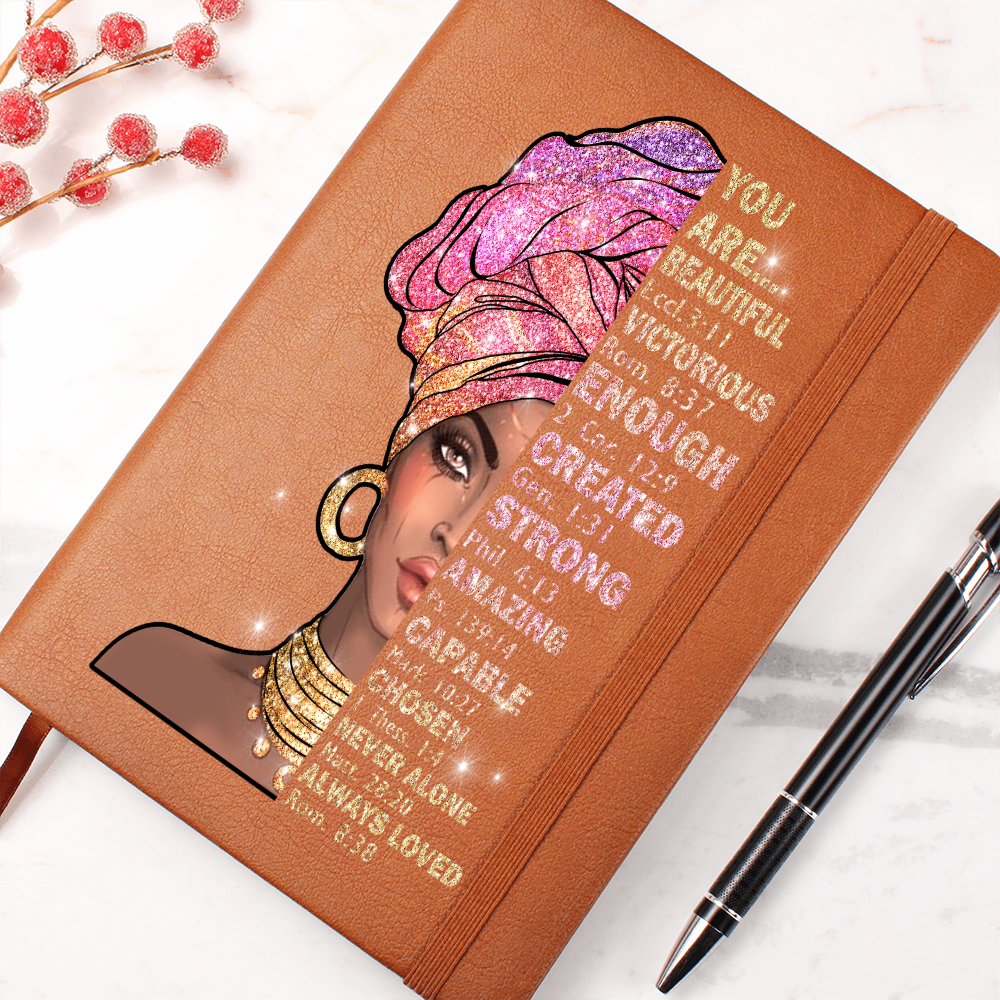 YOU
ARE...
BEAUTIFUL
Eccl.3:11
VICTORIOUS
Rom. 8:37
ENOUGH
2 Cor. 12:9
CREATED
Gen. 1:31
STRONG
Phil. 4:13
AMAZING
Ps. 139:14
CAPABLE
Mark 10:27
CHOSEN
1 Thess. 1:4
NEVER ALONE
Matt. 28:20
ALWAYS LOVED
Rom. 8:38